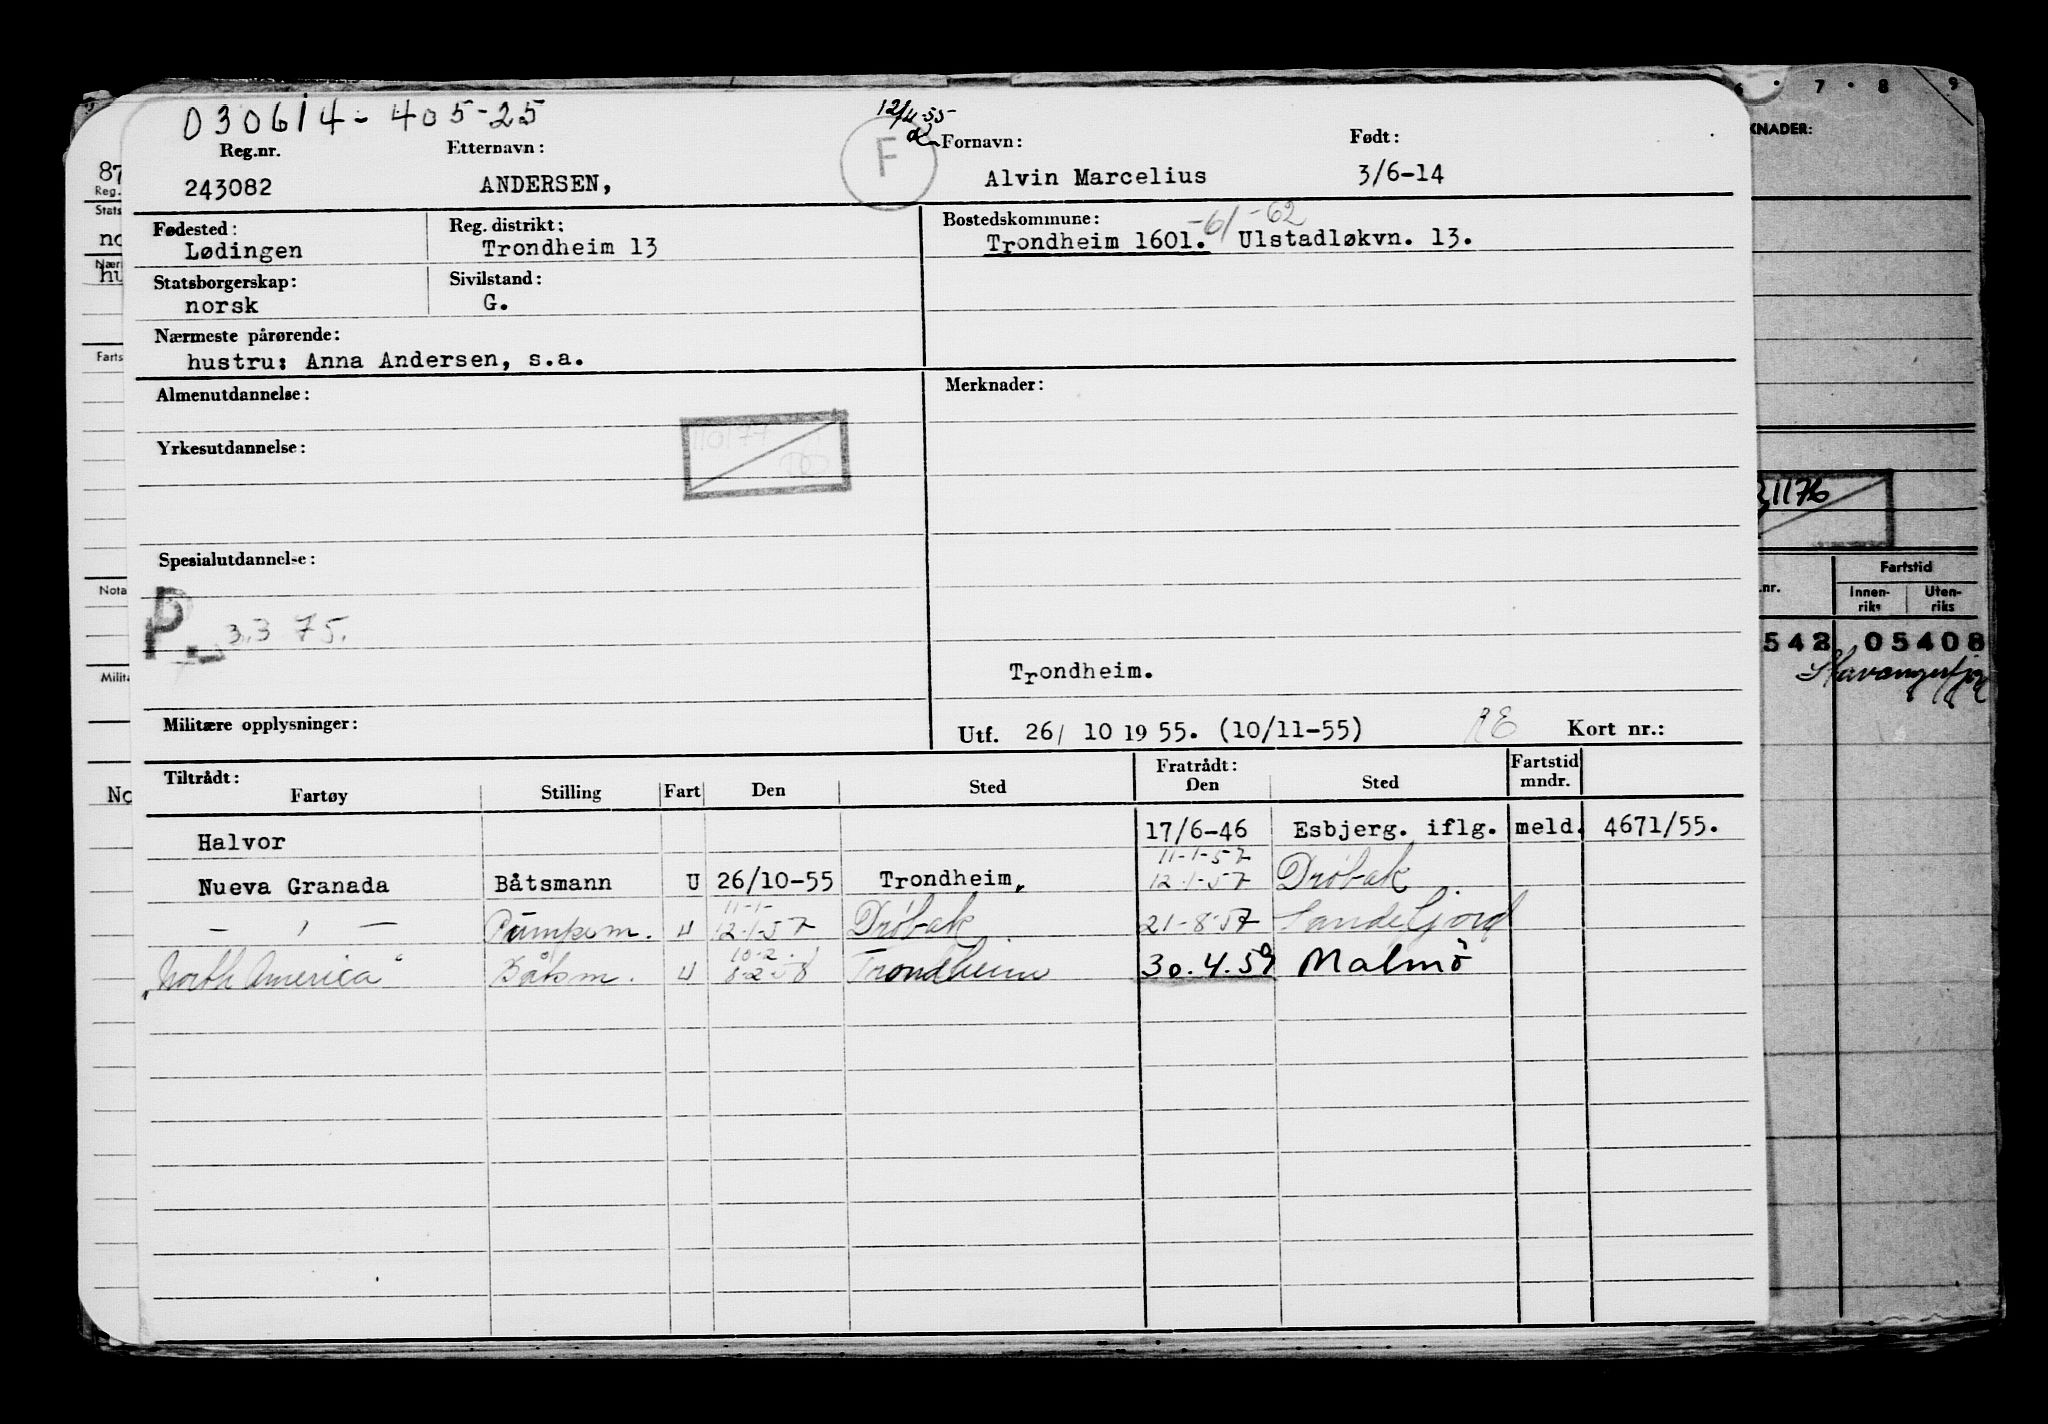 030614-405-25
12/11-55
Reg.nr. Etternavn: F Fornavn: Født:
243082 ANDERSEN, Alvin Marcelius 3/6-14
Fødested: Reg. distrikt: Bostedskommune: -61 -62
Lødingen Trondheim 13 Trondheim 1601. Ulstadløkvn. 13.
Statsborgerskap: Sivilstand:
norsk G.
Nærmeste pårørende:
hustru: Anna Andersen, s.a.
Almenutdannelse: Merknader:
Yrkesutdannelse:
110177
Spesialutdannelse:
P. 3.3 75.
Trondheim.
Militære opplysninger: Utf. 26/ 10 19 55. (10/11-55) AE Kort nr.:
Tiltrådt: Fratrådt: Fartstid
Fartøy Stilling Fart Den Sted Den Sted mndr.
Halvor 17/6-46 Esbjerg. iflg. meld. 4671/55.
11-1-57
Nueva Granada Båtsmann U 26/10-55 Trondheim, 12-1-57 Drøbak
11-1-
— " — Pumpem. U 12-1-57 Drøbak 21-8-57 Sandefjord
10-2-
"North America" Båtsm. U 8-2-58 Trondheim 30.4.59 Malmö
87
Reg.
Stats
no
Nær
hu
Farts
Nota
Milita
No
6 · 7 · 8 9
KNADER:
21176
Fartstid
.nr. Innen-riks Uten-riks
542 05408
Stavangerfjor